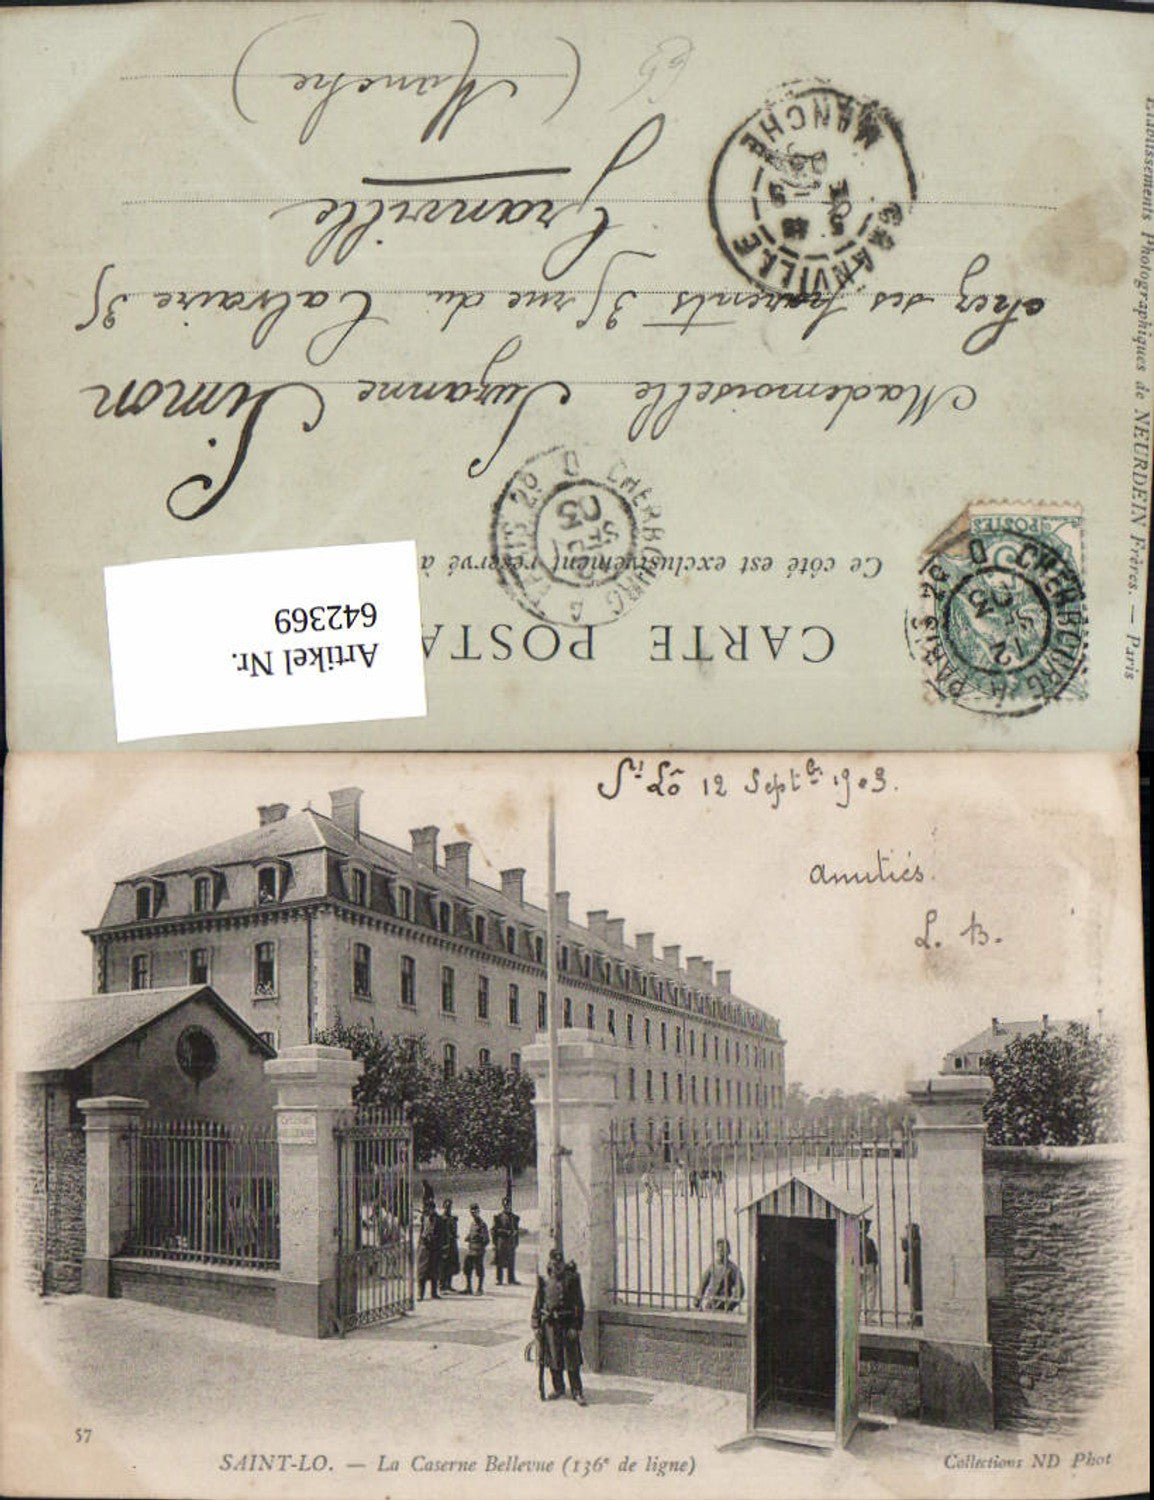 CARTE POSTA
Ce côté est exclusivement réservé à
Artikel Nr.
642369
Mademoiselle Suzanne Simon
chez ses parents 35 rue du Calvaire 35
Granville
(Manche)
POSTES
CHERBOURG A PARIS 2º
03
CHERBOURG A PARIS 2º
03
GRANVILLE
MANCHE
Etablissements Photographiques de NEURDEIN Frères. — Paris
St Lô 12 Septbre 1903.
Amitiés.
L. B.
57
SAINT-LO. — La Caserne Bellevue (136e de ligne)
Collections ND Phot